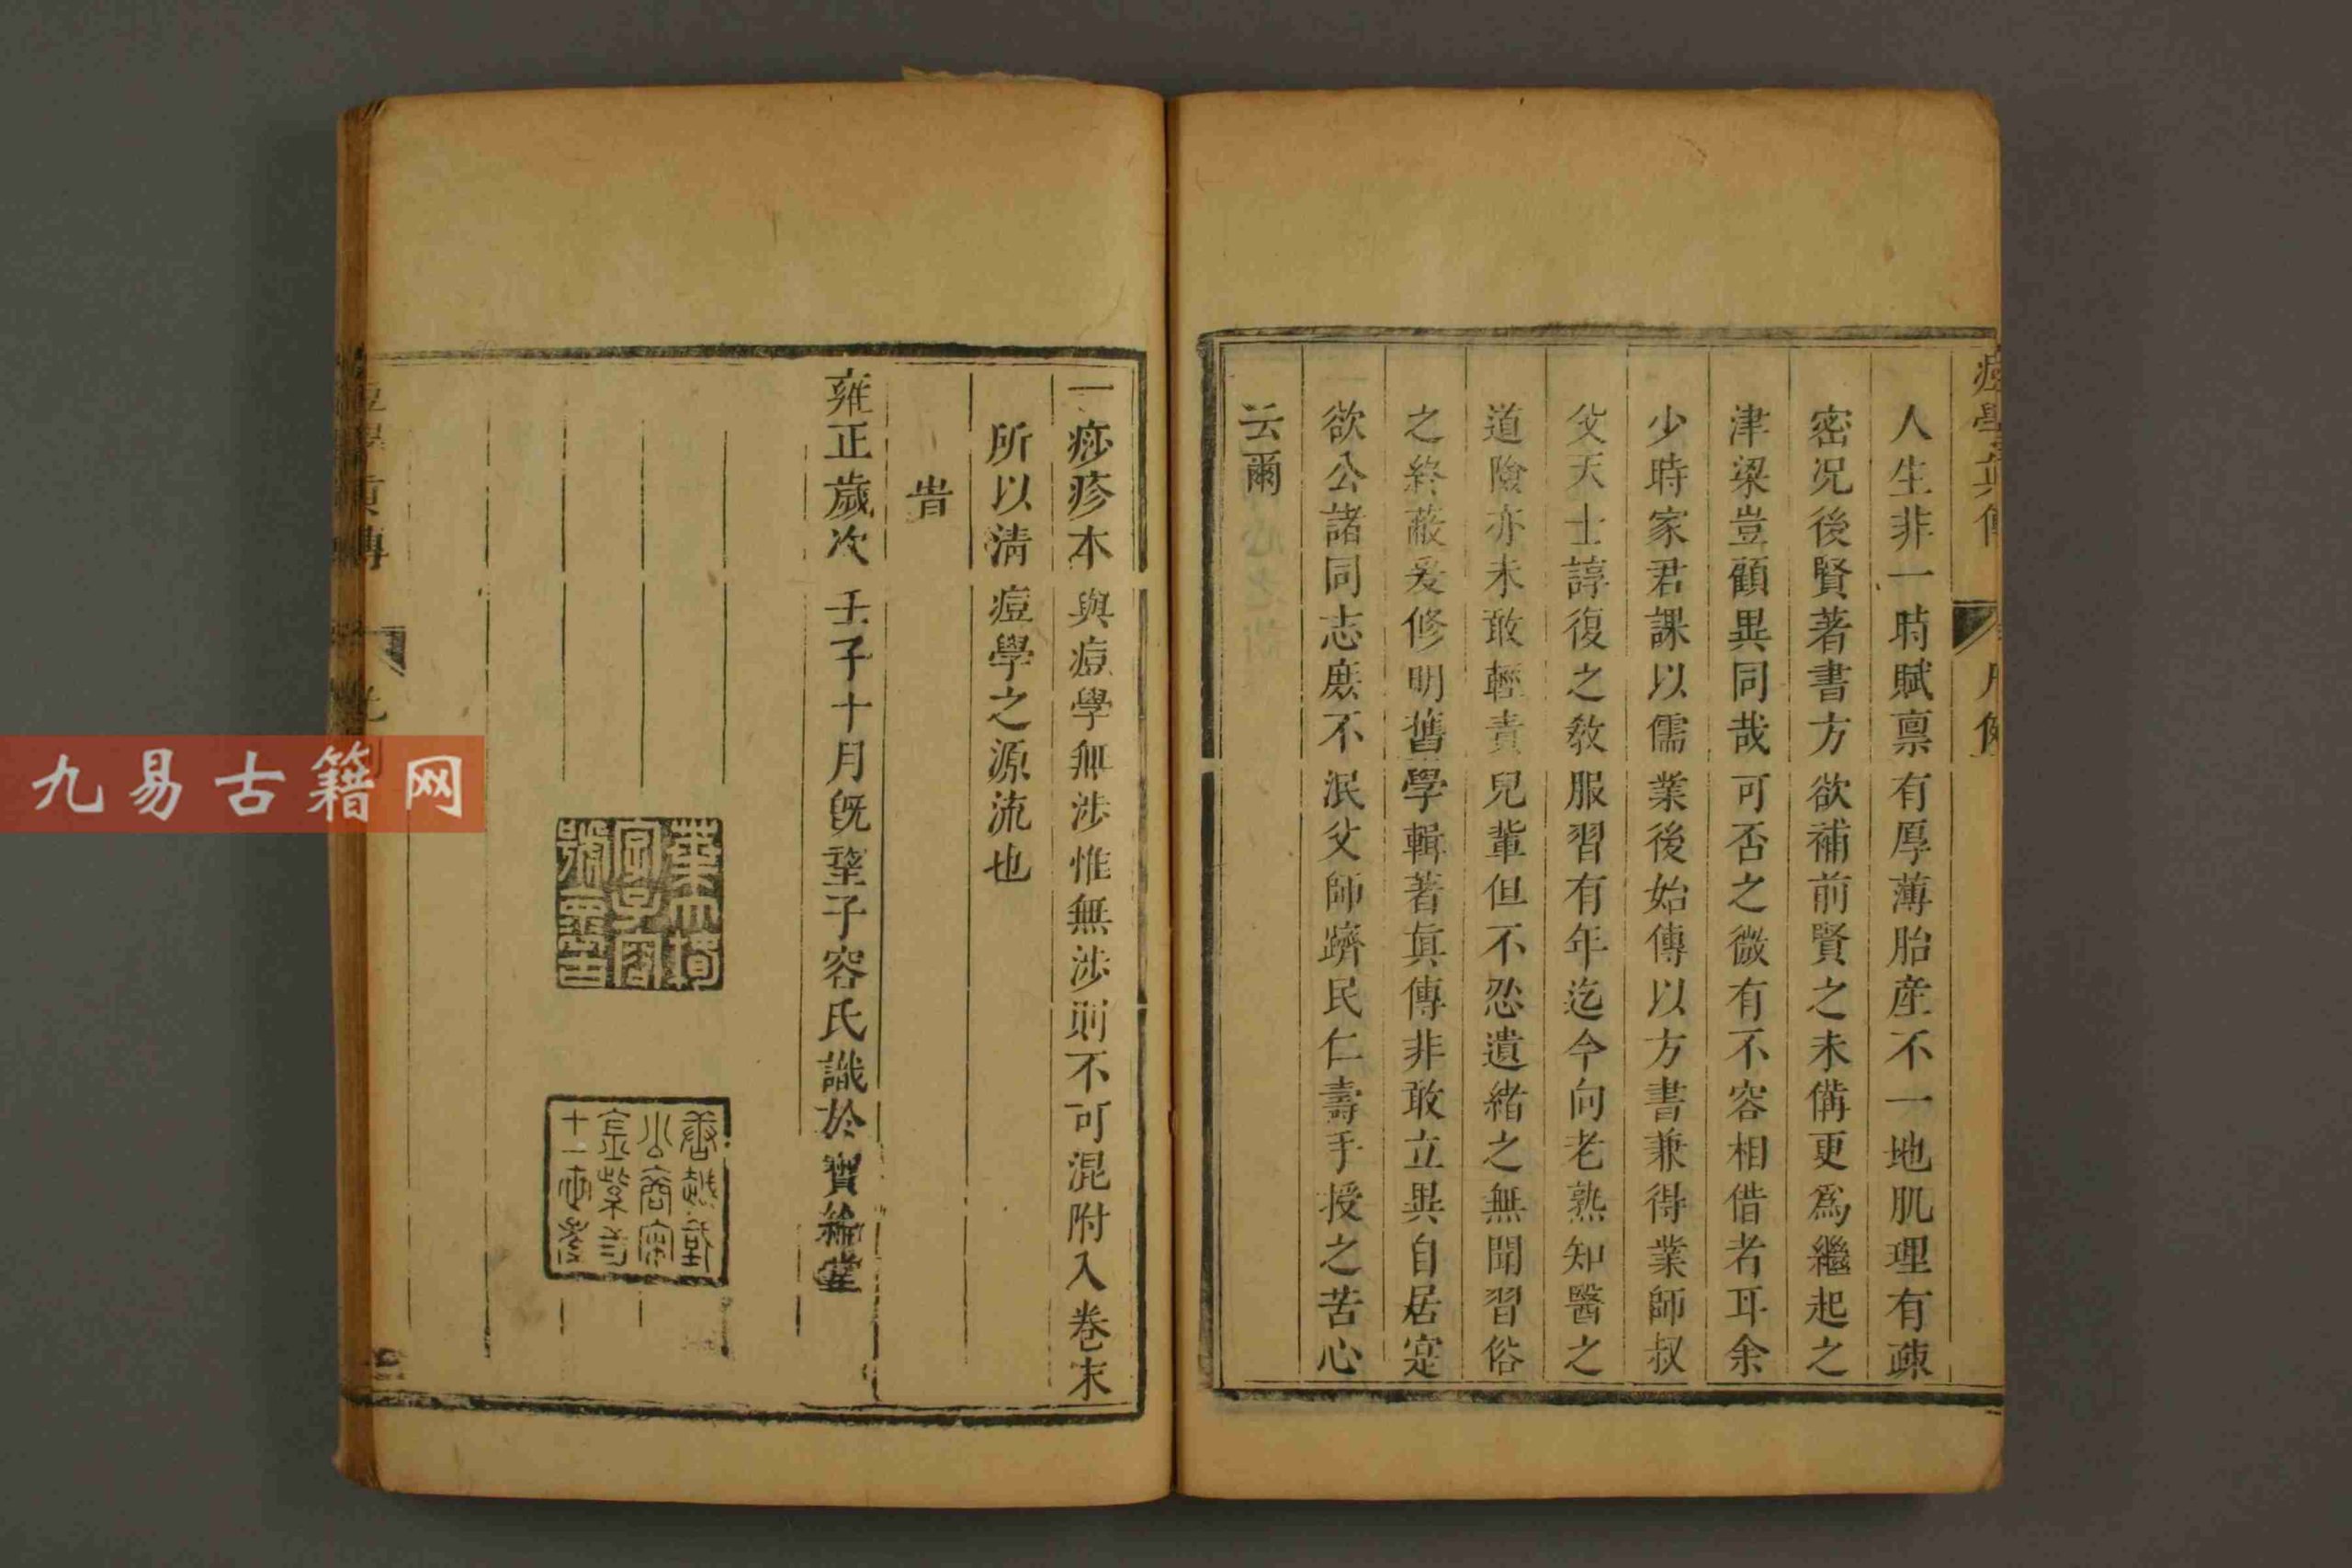 人生非一時賦禀有厚薄胎産不一地肌理有疎
密况後賢著書方欲補前賢之未備更爲繼起之
津梁豈顧異同哉可否之微有不容相借者耳余
少時家君課以儒業後始傳以方書兼得業師叔
父天士諄復之教服習有年迄今向老熟知醫之
道險亦未敢輕責兒輩但不忍遺緒之無聞習俗
之終蔽爰修明舊學輯著眞傳非敢立異自居寔
欲公諸同志庶不泯父師躋民仁壽手授之苦心
云爾
一痧疹本與痘學無涉惟無涉則不可混附入卷末
所以清痘學之源流也
旹
雍正歲次壬子十月旣望子容氏識於寶綸堂
九易古籍网